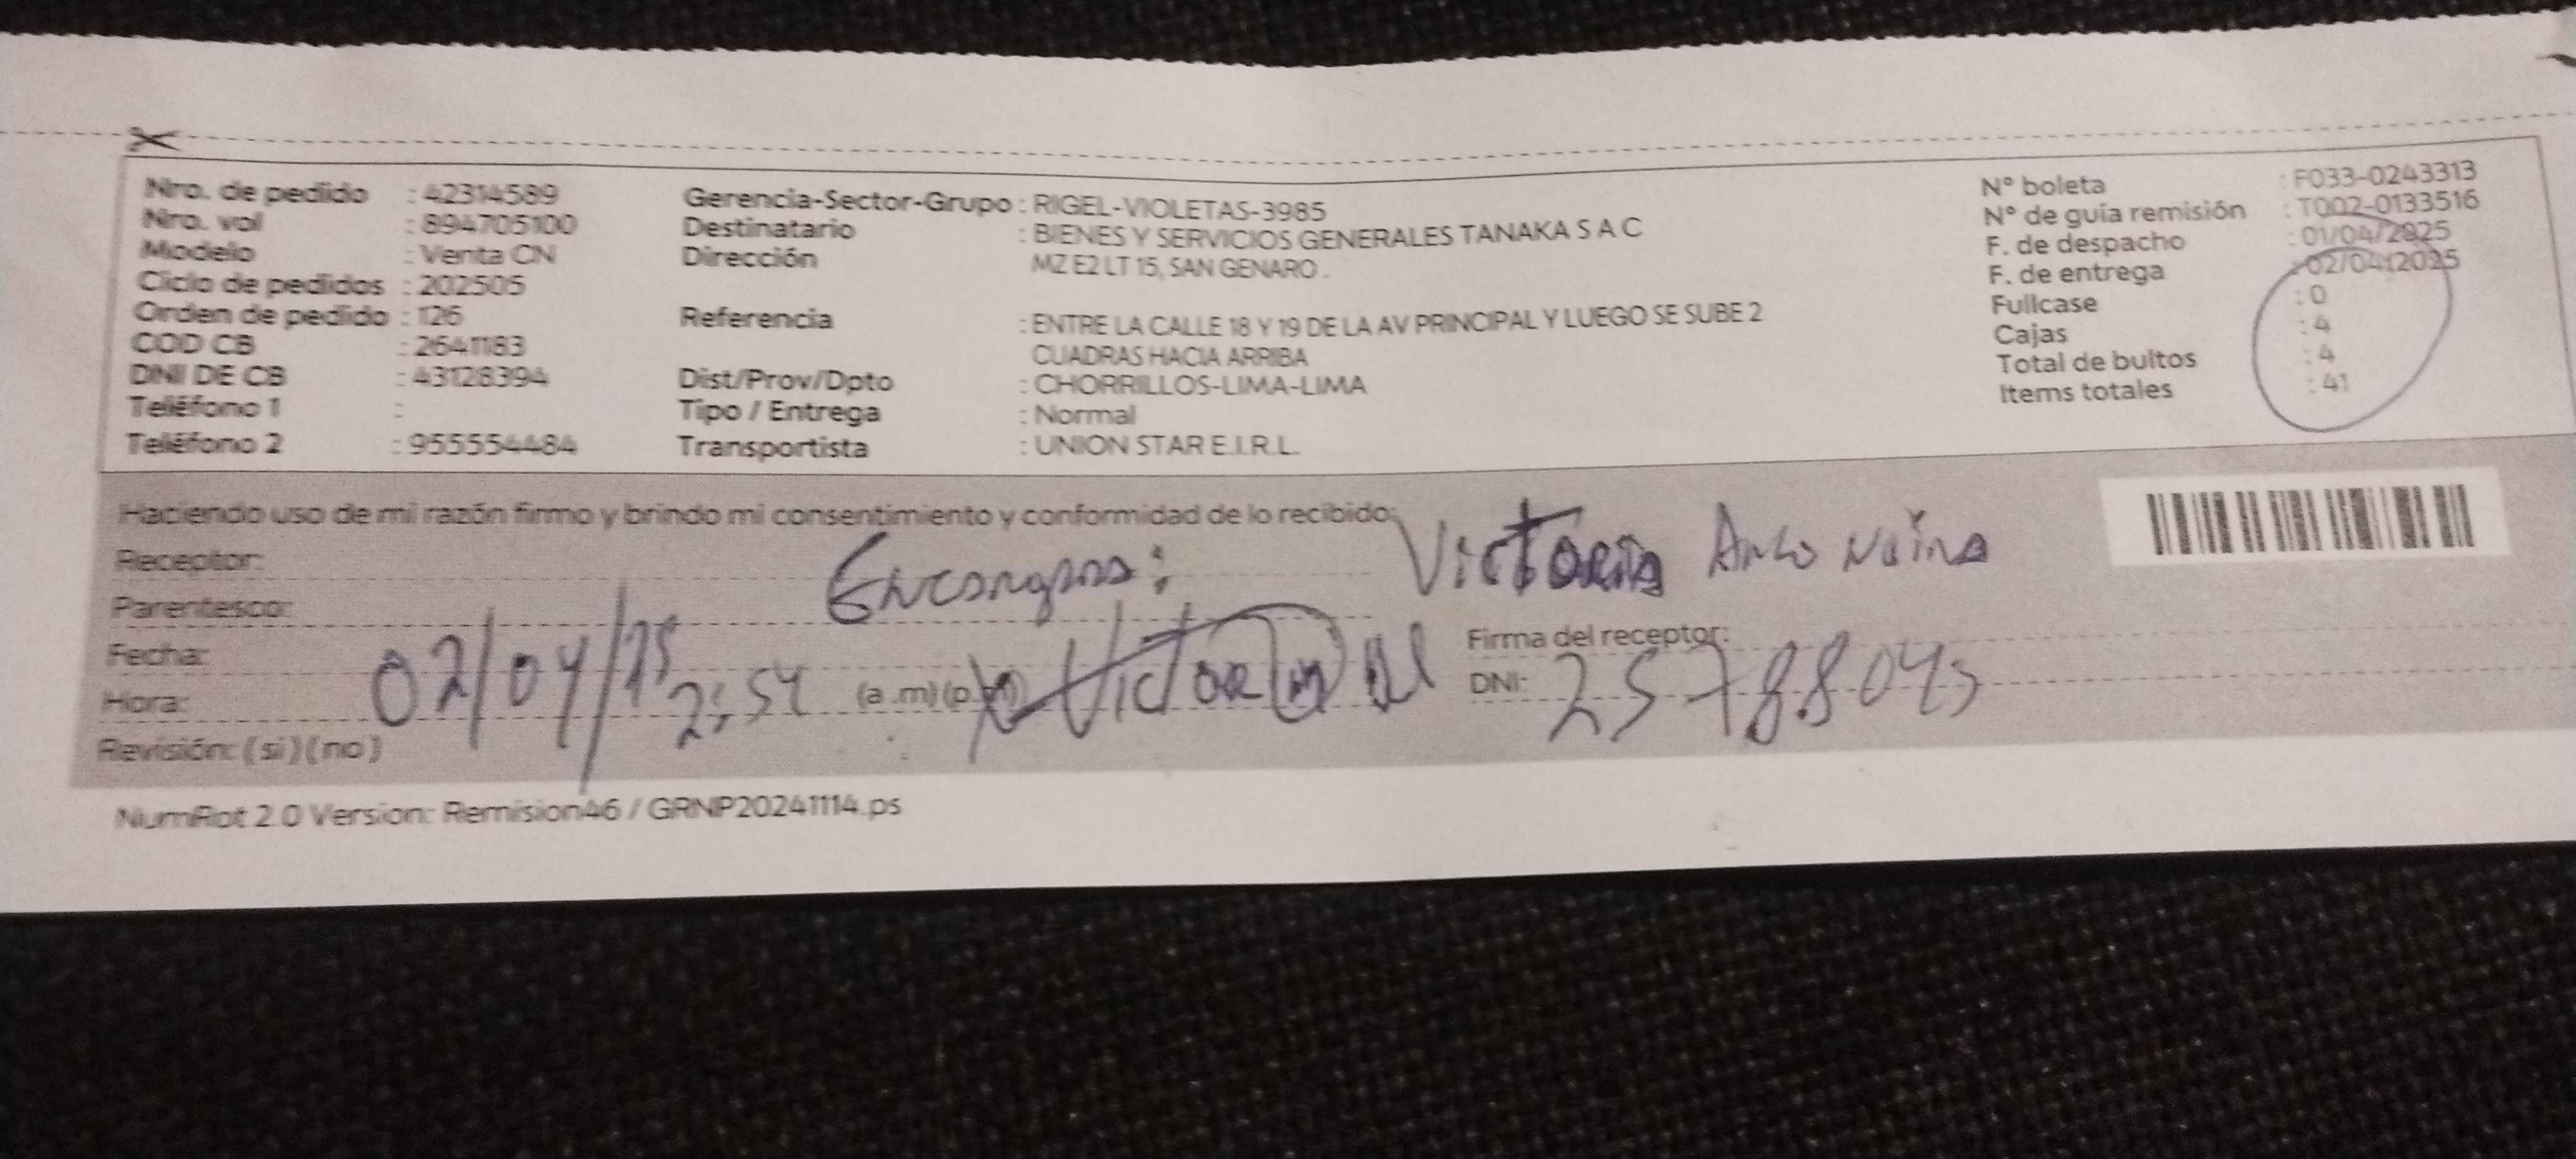 Nro. de pedido : 42314589
Nro. vol : 894705100
Modelo : Venta CN
Ciclo de pedidos : 202505
Orden de pedido : 126
COD CB : 2641183
DNI DE CB : 43128394
Teléfono 1 :
Teléfono 2 : 955554484
Gerencia-Sector-Grupo : RIGEL-VIOLETAS-3985
Destinatario : BIENES Y SERVICIOS GENERALES TANAKA S A C
Dirección MZ E2 LT 15, SAN GENARO .
Referencia : ENTRE LA CALLE 18 Y 19 DE LA AV PRINCIPAL Y LUEGO SE SUBE 2
CUADRAS HACIA ARRIBA
Dist/Prov/Dpto : CHORRILLOS-LIMA-LIMA
Tipo / Entrega : Normal
Transportista : UNION STAR E.I.R.L.
N° boleta : F033-0243313
N° de guía remisión : T002-0133516
F. de despacho : 01/04/2025
F. de entrega : 02/04/2025
Fullcase : 0
Cajas : 4
Total de bultos : 4
Items totales : 41
Haciendo uso de mi razón firmo y brindo mi consentimiento y conformidad de lo recibido:
Receptor: Victoria
Parentesco:
Fecha: 02/04/25
Hora: 2:54 (a.m)(p.m)
Revisión: (si)(no)
Firma del receptor:
DNI: 25788043
NumRot 2.0 Version: Remision46 / GRNP20241114.ps